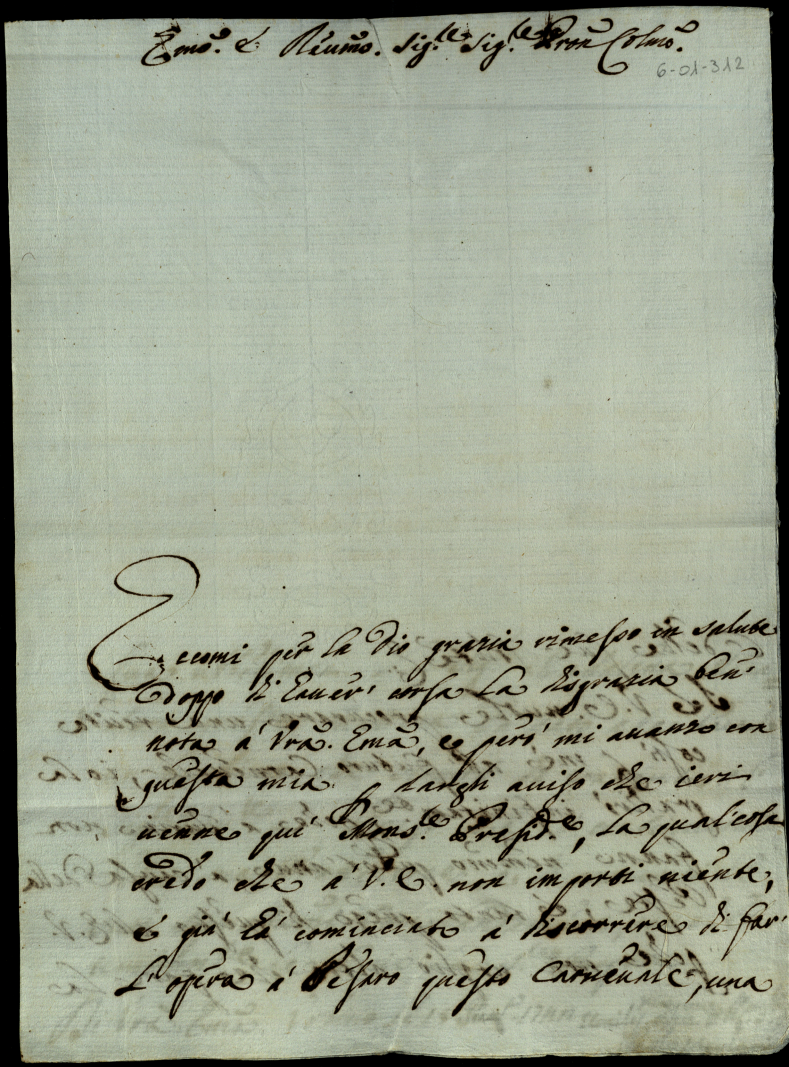 Emo. e Reumo. Sig.re Sig.re Pron Colmo.
6-01-312
Eccomi per la Dio grazia rimesso in salute
doppo di hauer' corsa la disgrazia ben'
nota à Vra. Ema, e però mi auanzo con
questa mia p dargli auiso che ieri
uenne quì Mons.re Presid.e, la qual cosa
credo che à V.E. non importi niente,
e già hà cominciato à discorrere di far'
L'opera à Pesaro questo Carneuale, una